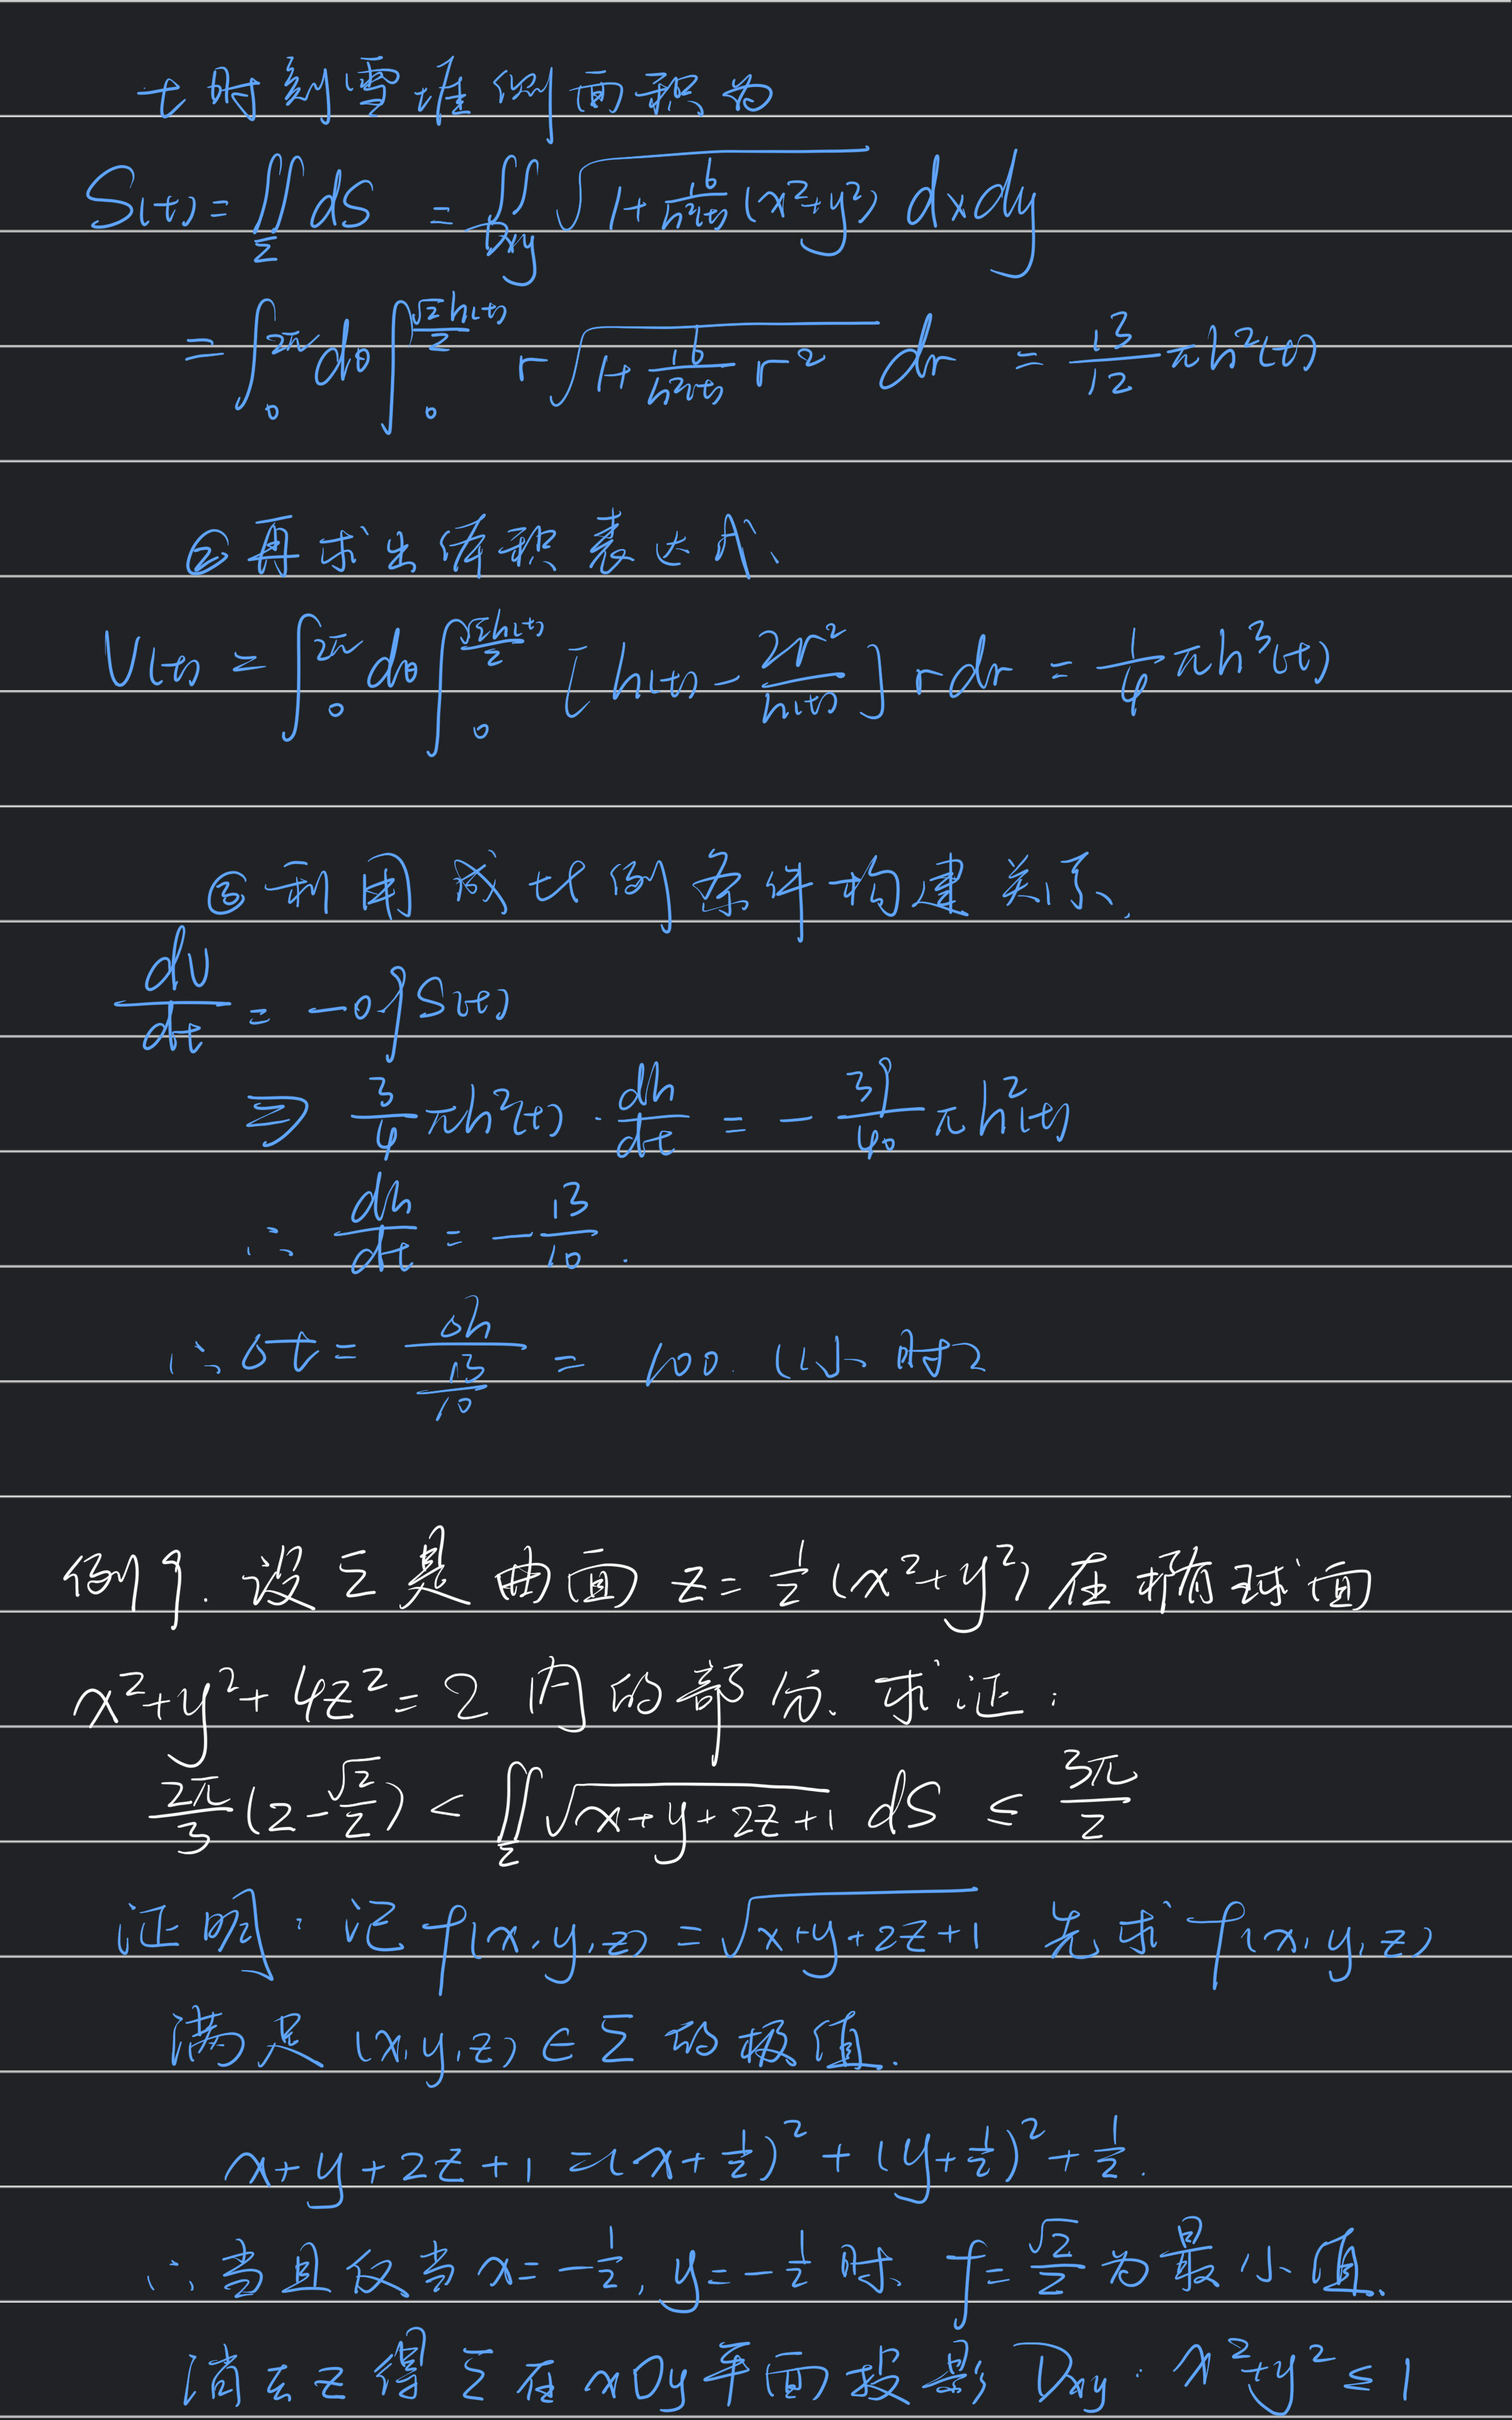 t时刻雪堆侧面积为
S(t) = ∬_Σ dS = ∬_{Dxy} √(1+16/h²(t) (x²+y²)) dxdy
= ∫_0^{2π} dθ ∫_0^{√2h(t)/2} r√(1+16/h²(t) r²) dr = 13/12 πh²(t)
②再求出体积表达式、
V(t) = ∫_0^{2π} dθ ∫_0^{√2h(t)/2} [h(t) - 2r²/h(t)] rdr = 1/4 πh³(t)
③利用成比例条件构建关系、
dV/dt = -0.9S(t)
⇒ 3/4 πh²(t)·dh/dt = -39/40 πh²(t)
∴ dh/dt = -13/10.
∴ Δt = Δh/(13/10) = 100. (小时)
例9. 设Σ是曲面 z=1/2(x²+y²) 在椭球面
x²+y²+4z²=2 内的部分. 求证:
2π/3 (2-√2/2) < ∬_Σ √(x+y+2z+1) dS ≤ 3π/2
证明: 记 f(x,y,z)=√(x+y+2z+1) 先求 f(x,y,z)
满足 (x,y,z)∈Σ 的极值.
x+y+2z+1 =(x+1/2)²+(y+1/2)²+1/2.
∴当且仅当 x=-1/2, y=-1/2 时、f=√2/2 为最小值.
消去z得Σ在xOy平面投影 Dxy: x²+y²≤1